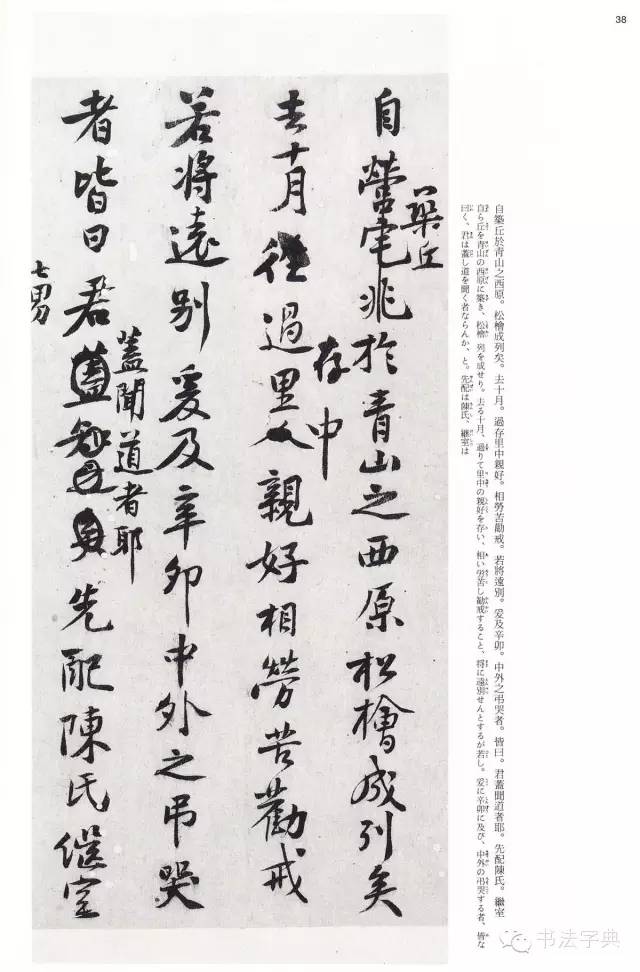 38
自營宅兆於青山之西原松檜成列矣
築丘
去十月徃過里人親好相勞苦勸戒
存中
若将遠别爰及辛卯中外之弔哭
者皆曰君蓋
先配陳氏継室
蓋聞道者耶
七男
自築丘於靑山之西原。松檜成列矣。去十月。過存里中親好。相勞苦勸戒。若將遠別。爰及辛卯。中外之弔哭者。皆曰。君蓋聞道者耶。先配陳氏。繼室
自ら丘を青山の西原に築き、松檜 列を成せり。去る十月、過りて里中の親好を存い、相い労苦し勧戒すること、将に遠別せんとするが若し。爰に辛卯に及び、中外の弔哭する者、皆な
曰く、君は蓋し道を聞く者ならんか、と。先配は陳氏、継室は
书法字典